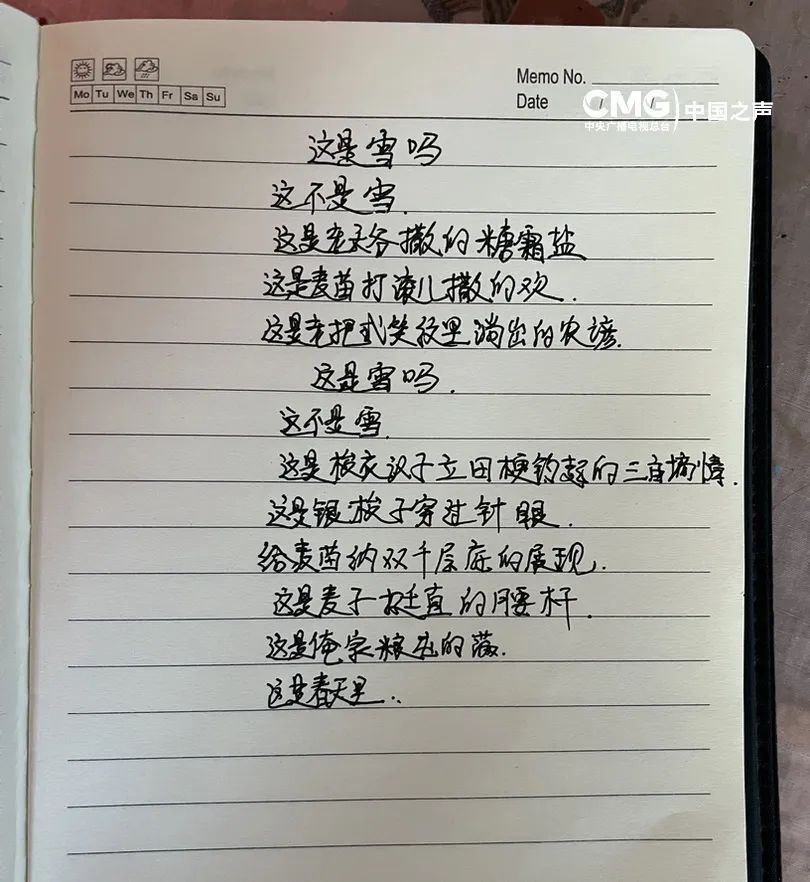 Memo No.
Mo Tu We Th Fr Sa Su
Date / /
CMG 中国之声
中央广播电视总台
这是雪吗
这不是雪.
这是老天爷撒的糖霜盐
这是麦苗打滚儿撒的欢.
这是老把式笑纹里淌出的农谚.
这是雪吗.
这不是雪.
这是 子在田埂钓起的三 墒情.
这是银梭子穿过针眼.
给麦苗纳双千层底的展现.
这是麦子挺直的腰杆.
这是俺家粮 的
这是春天里..